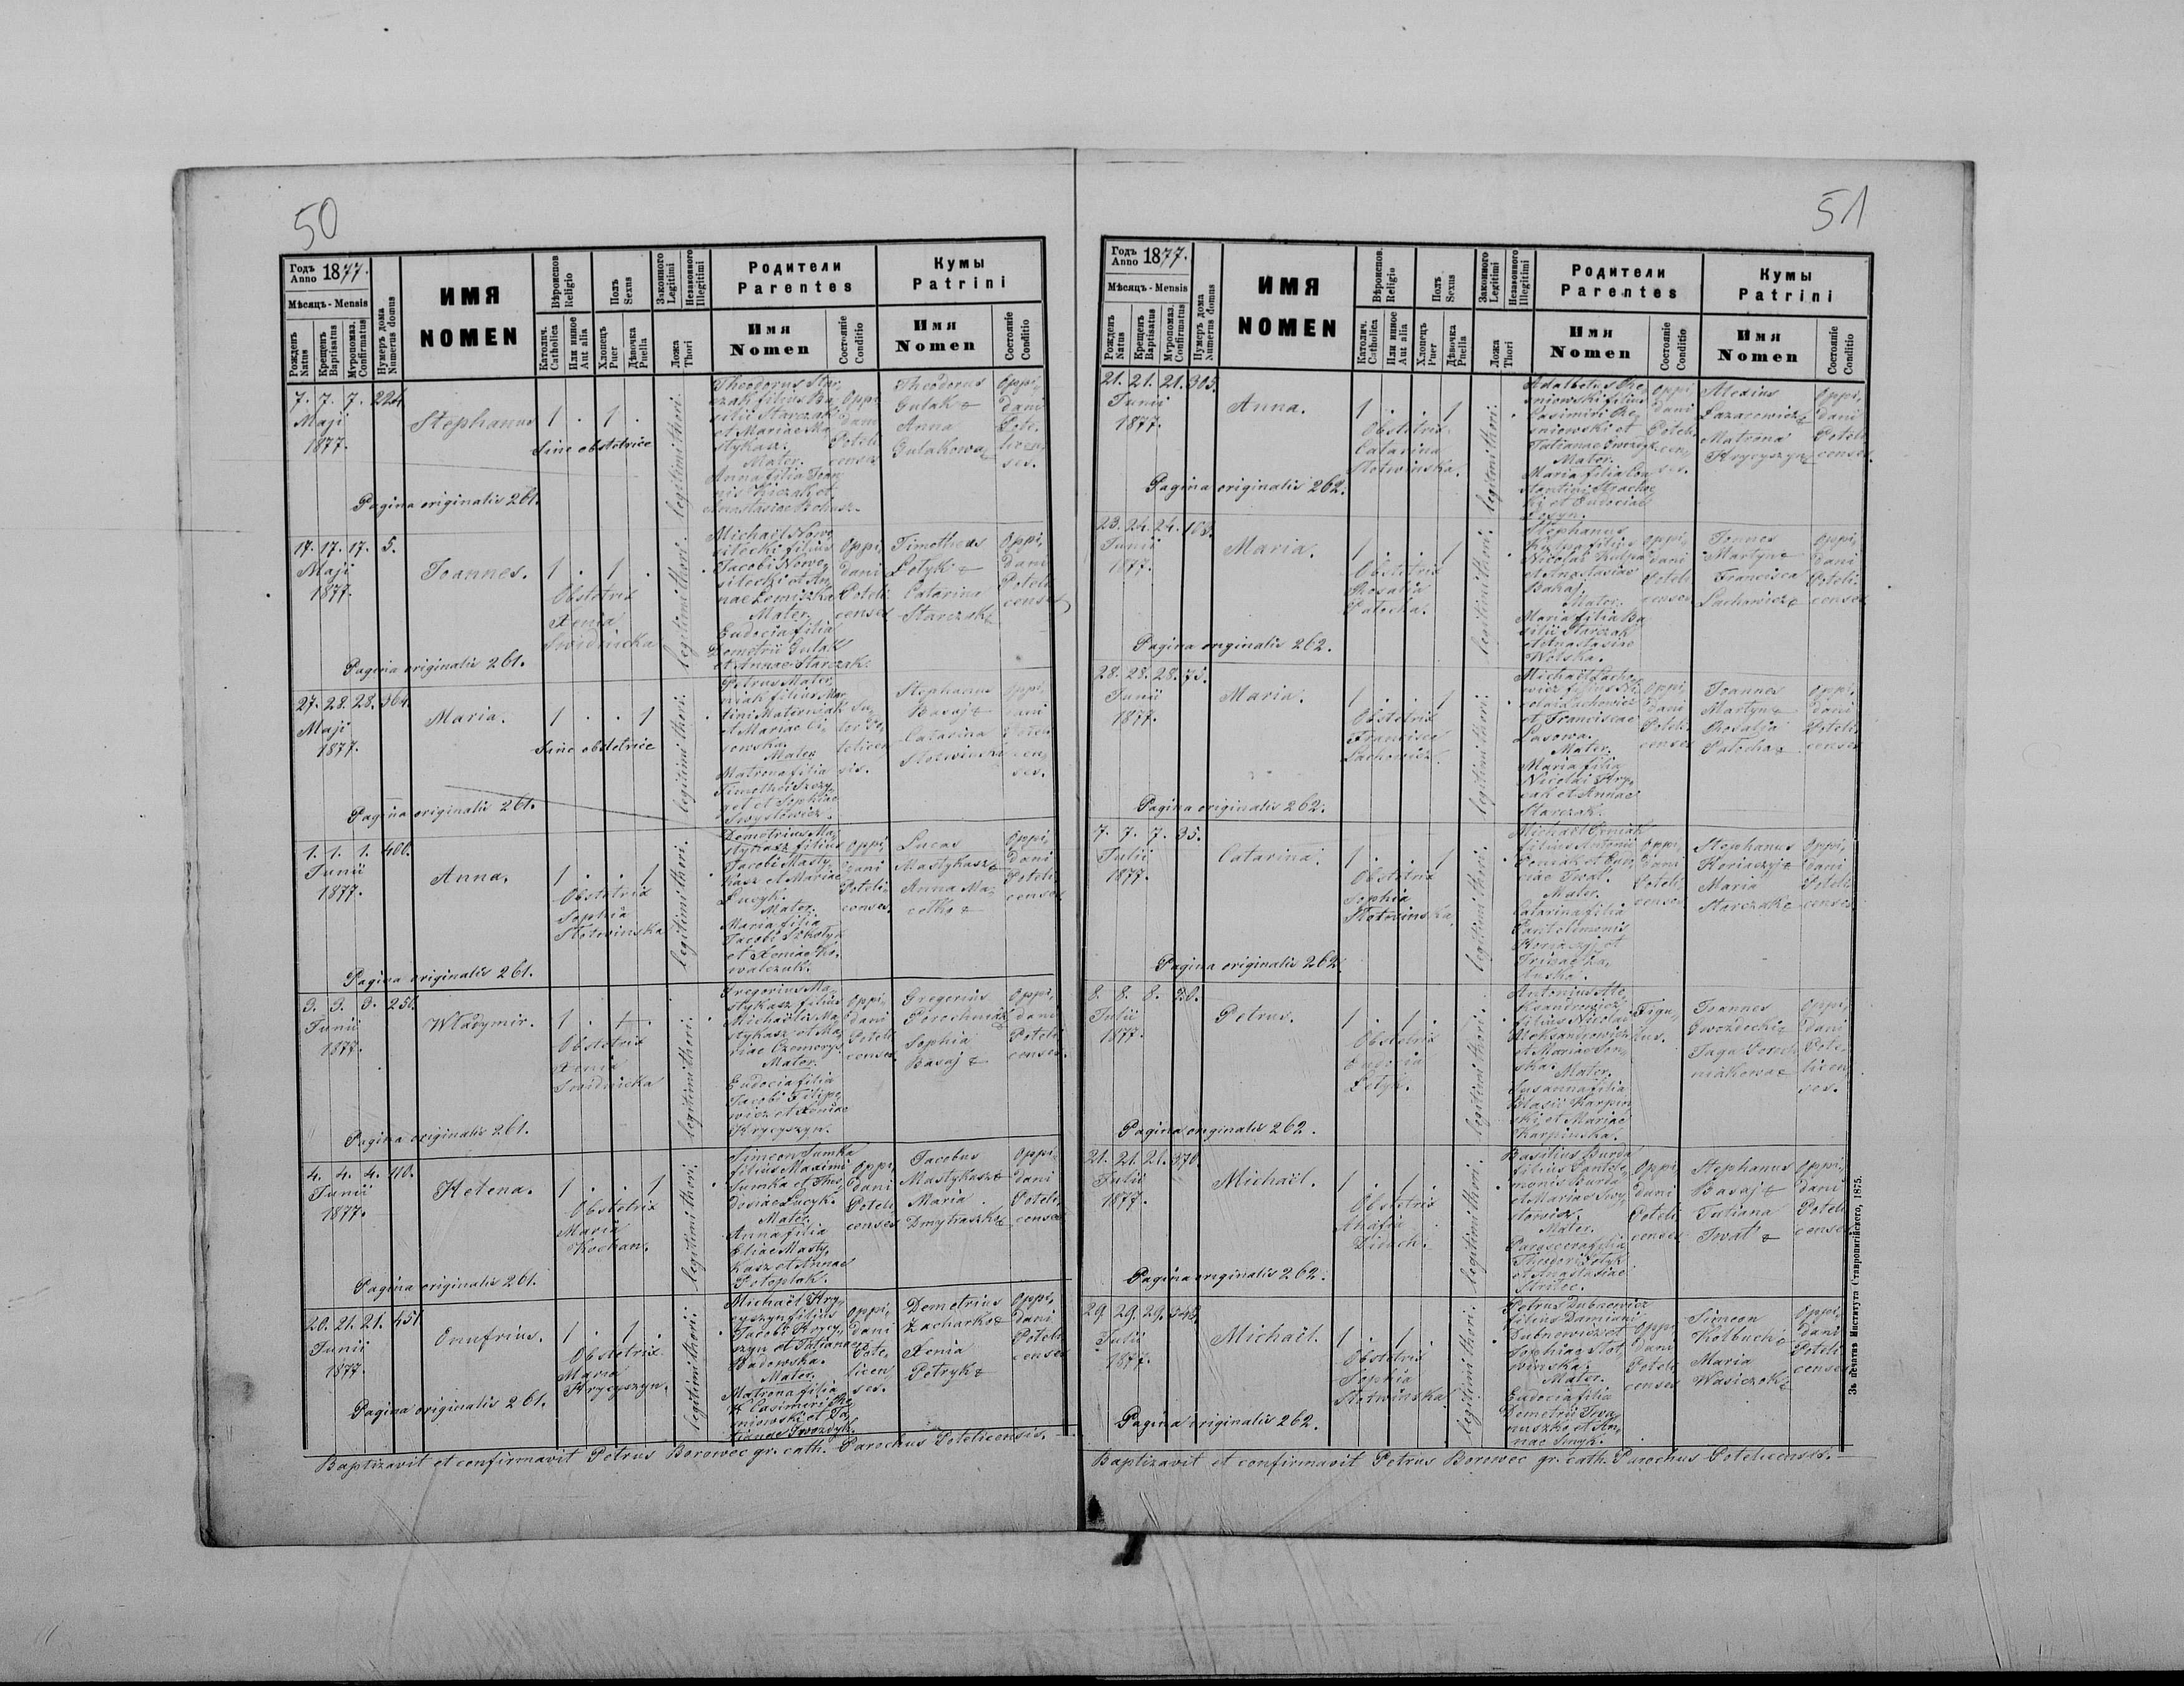 50
Годъ Anno 1877.
Мѣсяцъ - Mensis
Рожденъ Natus
Крещенъ Baptisatus
Мѵропомаз. Confirmatus
Нумеръ дома Numerus domus
ИМЯ
NOMEN
Вѣроиспов Religio
Католич. Catholica
Или инное Aut alia
Полъ Sexus
Хлопецъ Puer
Дѣвочка Puella
Законного Legitimi
Незаконного Illegitimi
Ложа Thori
Родители
Parentes
Имя
Nomen
Состояніе Conditio
Кумы
Patrini
Имя
Nomen
Состояніе Conditio
7. 7. 7. 224.
Maji
1877.
Stephanus
1 . 1 .
Sine obstetrice
legitimi thori.
Theodorus Star,
czak filius Ba,
silii Starczak
et Mariae Ma,
stykasz.
Mater.
Anna filia Joan,
nis
Anastasiae
Oppi,
dani
Poteli,
censes
Theodorus
Gulak &
Anna
Gulakowa &
Oppi,
dani
Pote,
licen,
ses.
Pagina originalis 261.
17. 17. 17. 5.
Maji
1877.
Joannes.
1 . 1 .
Obstetrix
Xenia
Swidnicka
legitimi thori.
Michaël Nowo,
silecki filius
Jacobi Nowo,
silecki et An,
nae Lomiszka
Mater.
Eudocia filia
Demetrii Gulak
et Annae Starczak.
Oppi,
dani
Poteli,
censes
Timotheus
Lotyk &
Catarina
Starczak &
Oppi,
dani
Poteli,
censes
Pagina originalis 261.
27. 28. 28. 364.
Maji
1877.
Maria.
1 . . 1
Sine obstetrice
legitimi thori.
Petrus Mater,
niak filius Mar,
tini Materniak
et Mariae
Mater
Matrona filia
Timothei
et Sophiae
Swystowicz.
Stephanus
Basaj &
Catarina
Slotwinska
Oppi,
dani
Poteli,
cen,
ses.
Pagina originalis 261.
1. 1. 1. 400.
Junii
1877.
Anna.
1 . . 1
Obstetrix
Sophia
Slotwinska
legitimi thori.
Demetrius Ma,
stykasz filius
Jacobi Masty,
kasz et Mariae
Lucyk.
Mater.
Maria filia
Jacobi Szkolyk
et Xeniae Ko,
walczuk.
Oppi,
dani
Poteli,
censes.
Lucas
Mastykasz &
Anna Ma,
celko &
Oppi,
dani
Poteli,
censes
Pagina originalis 261.
3. 3. 3. 251.
Junii
1877.
Wladymir.
1 . 1 .
Obstetrix
Xenia
Swidnicka
legitimi thori.
Gregorius Ma,
stykasz filius
Michaëlis Ma,
stykasz et Ma,
riae Czemerys.
Mater.
Eudocia filia
Jacobi Filipo,
wicz et Xeniae
Hrycyszyn.
Oppi,
dani
Poteli,
censes
Gregorius
Sophia
Basaj &
Oppi,
dani
Poteli,
censes.
Pagina originalis 261.
4. 4. 4. 110.
Junii
1877.
Helena.
1 . . 1
Obstetrix
Maria
Kochan.
legitimi thori.
Simeon Sumka
filius Maximi
Sumka et Theo,
dosiae Lucyk.
Mater.
Anna filia
Eliae Masty,
kasz et Annae
Poteplak.
Oppi,
dani
Poteli,
censes
Jacobus
Mastykasz &
Maria
Dmytraszko &
Oppi,
dani
Poteli,
censes
Pagina originalis 261.
20. 21. 21. 451
Junii
1877.
Onufrius.
1 . 1 .
Obstetrix
Maria
Hrycyszyn.
legitimi thori.
Michaël Hry,
cyszyn filius
Jacobi Hrycy,
szyn et Tatianae
Badowska.
Mater.
Matrona filia
Casimiri Re,
sniowski et Ta,
tianae Gwozdyk.
Oppi,
dani
Pote,
licen,
ses.
Demetrius
Zacharko &
Xenia
Petryk &
Oppi,
dani
Poteli,
censes
Pagina originalis 261.
Baptizavit et confirmavit Petrus Borowec gr. cath. Parochus Potelicensis.
51
Годъ Anno 1877.
Мѣсяцъ - Mensis
Рожденъ Natus
Крещенъ Baptisatus
Мѵропомаз. Confirmatus
Нумеръ дома Numerus domus
ИМЯ
NOMEN
Вѣроиспов. Religio
Католич. Catholica
Или инное Aut alia
Полъ Sexus
Хлопецъ Puer
Дѣвочка Puella
Законного Legitimi
Незаконного Illegitimi
Ложа Thori
Родители
Parentes
Имя
Nomen
Состояніе Conditio
Кумы
Patrini
Имя
Nomen
Состояніе Conditio
21. 21. 21. 305.
Junii
1877.
Anna.
1 . . 1
Obstetrix
Catarina
Slotwinska.
legitimi thori.
Adalbertus Re,
sniowski filius
Casimiri Re,
sniowski et
Tatianae Gwozdyk
Mater.
Maria filia Con,
stantini
et Eudociae
Oppi,
dani
Poteli,
cen,
ses.
Alexius
Lazarowicz &
Matrona
Hrycyszyn &
Oppi,
dani
Poteli,
censes.
Pagina originalis 262.
23. 24. 24. 108.
Junii
1877.
Maria.
1 . . 1
Obstetrix
Rosalia
Patocha.
legitimi thori.
Stephanus
Kulpa filius
Nicolai Kulpa
et Anastasiae
Bakaj.
Mater.
Maria filia Ba,
silii Starczak
et Anastasiae
Wolska.
Oppi,
dani
Poteli,
censes
Joannes
Martyn &
Francisca
Lachowicz &
Oppi,
dani
Poteli,
censes
Pagina originalis 262.
28. 28. 28. 75.
Junii
1877.
Maria.
1 . . 1
Obstetrix
Francisca
Lachowicz.
legitimi thori.
Michaël Lacho,
wicz filius Ni,
colai Lachowicz
et Franciscae
Lasowa.
Mater.
Maria filia
Nicolai Hry,
cak et Annae
Starczak.
Oppi,
dani
Poteli,
censes
Joannes
Martyn &
Rosalia
Patocha &
Oppi,
dani
Poteli,
censes
Pagina originalis 262.
7. 7. 7. 35.
Julii
1877.
Catarina.
1 . . 1
Obstetrix
Sophia
Slotwinska
legitimi thori.
Michaël
filius Antonii
Mater.
Catarina filia
Pantelimonis
Koriaczyj et
Oppi,
dani
Poteli,
censes
Stephanus
Koriaczyj &
Maria
Starczak &
Oppi,
dani
Poteli,
censes
Pagina originalis 262
8. 8. 8. 20.
Julii
1877.
Petrus.
1 . 1 .
Obstetrix
Eudocia
Lotyk.
legitimi thori.
Antonius Ale,
ksandrowicz
filius Nicolai
Aleksandrowicz
et Mariae Son,
ska.
Mater.
Susanna filia
Blasii Karpin,
ski et Mariae
Karpinska.
Figu,
lus.
Joannes
Gwozdecki &
Oppi,
dani
Pote,
licen,
ses.
Pagina originalis 262.
21. 21. 21. 370.
Julii
1877.
Michaël.
1 . 1 .
Obstetrix
Ahafia
legitimi thori.
Basilius Burda
filius Pantele,
monis Burda
et Mariae Swy,
stowicz.
Mater.
Parasceva filia
Theodori Lotyk
et Anastasiae
Strilec.
Oppi,
dani
Poteli,
censes
Stephanus
Basaj &
Tatiana
Iwat &
Oppi,
dani
Poteli,
censes
Pagina originalis 262.
29. 29. 29. 548.
Julii
1877.
Michaël.
1 . 1 .
Obstetrix
Sophia
Slotwinska
legitimi thori.
Petrus Dubnewicz
filius Damiani
Dubnewicz et
Sophiae Slot,
winska.
Mater.
Eudocia filia
Demetrii Iwa,
nuszko et An,
nae
Oppi,
dani
Poteli,
censes
Simeon
Kolbuch &
Maria
Wasiczok &
Oppi,
dani
Poteli,
censes
Pagina originalis 262.
Baptizavit et confirmavit Petrus Borowec gr. cath. Parochus Potelicensis.
Зъ печатнѣ Института Ставропигійского, 1875.